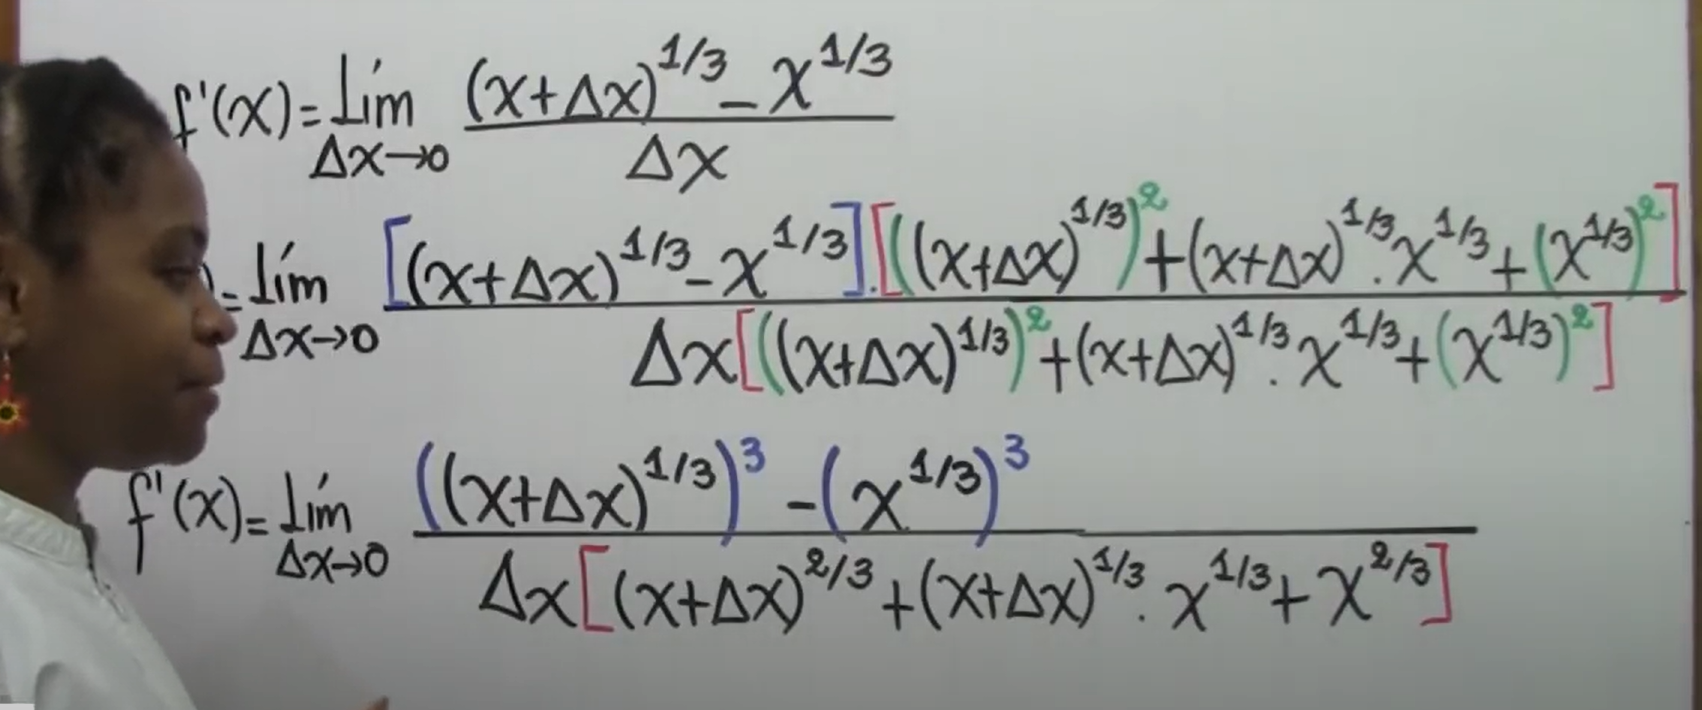 f'(x)=Lím Δx→0 ((x+Δx)^1/3 - x^1/3)/Δx
)=Lím Δx→0 [(x+Δx)^1/3 - x^1/3].[((x+Δx)^1/3)^2+(x+Δx)^1/3.x^1/3+(x^1/3)^2]/Δx[((x+Δx)^1/3)^2+(x+Δx)^1/3.x^1/3+(x^1/3)^2]
f'(x)=Lím Δx→0 ((x+Δx)^1/3)^3 -(x^1/3)^3/Δx[(x+Δx)^2/3+(x+Δx)^1/3.x^1/3+x^2/3]